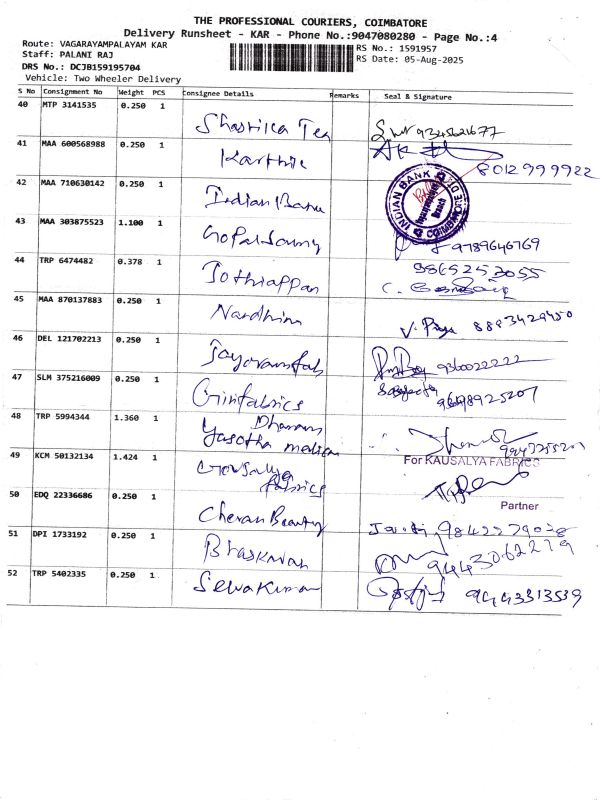 THE PROFESSIONAL COURIERS, COIMBATORE
Delivery Runsheet - KAR - Phone No.:9047080280 - Page No.:4
Route: VAGARAYAMPALAYAM KAR
RS No.: 1591957
Staff: PALANI RAJ
RS Date: 05-Aug-2025
DRS No.: DCJB159195704
Vehicle: Two Wheeler Delivery
S No Consignment No Weight PCS Consignee Details Remarks Seal & Signature
40 MTP 3141535 0.250 1 Shastika Tex 9345621677
41 MAA 600568988 0.250 1 Karthik 8012999922
42 MAA 710630142 0.250 1 Indian Bank INDIAN BANK COIMBATORE
43 MAA 303875523 1.100 1 Gopalsamy 9789646769
44 TRP 6474482 0.378 1 Jothiappan 9865253055
45 MAA 870137883 0.250 1 Nardhini V. Priya 8883429450
46 DEL 121702213 0.250 1 9360022222
47 SLM 375216009 0.250 1 Grinfabrics
48 TRP 5994344 1.360 1 Dharani
Yasotha medical
49 KCM 50132134 1.424 1 Gowsalya
Fabrics
For KAUSALYA FABRICS
Partner
50 EDQ 22336686 0.250 1 Cheran Beauty 9842279028
51 DPI 1733192 0.250 1 Bhaskaran 9443062279
52 TRP 5402335 0.250 1 Selvakumar 9443313539